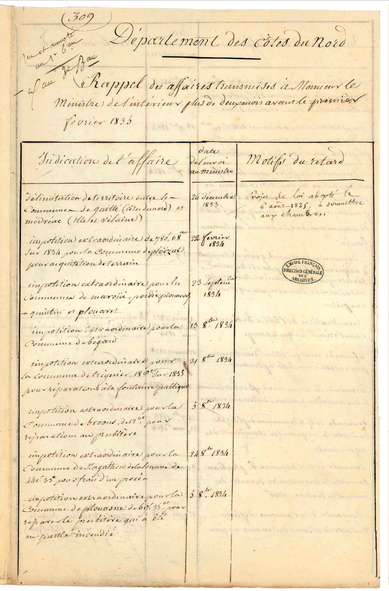 (309)
Département des côtes du Nord
Rappel des affaires transmises à Monsieur le
Ministre de l'intérieur plus de deux mois avant le premier
février 1835
Indication de l'affaire
date
de l'envoi
au ministère
Motifs du retard
délimitation de territoire entre les
Communes de (Côtes du nord) et
(Ille et vilaine)
26 décembre
1833
Projet de loi adopté le
6 avril 1835, à soumettre
aux chambres
imposition extraordinaire de
Sur 1834 pour la Commune de ploëzal
pour acquisition de terrain
22 février
1834
imposition extraordinaire pour les
Communes de
quintin et plouaret
23 septembre
1834
imposition extraordinaire pour la
Commune de bégard
13 8bre 1834
imposition extraordinaire pour
la Commune de tréguier Sur 1835
pour réparations à la fontaine publique
21 8bre 1834
imposition extraordinaire pour la
Commune de broons, de
réparation au presbitère
5 8bre 1834
imposition extraordinaire pour la
Commune de St agathon de la somme de
pour frais d'un procès
24 8bre 1834
imposition extraordinaire pour la
Commune de de pour
réparer le presbitère qui a été
en partie incendié
5 8bre 1834
DIRECTION GÉNÉRALE
DES
ARCHIVES